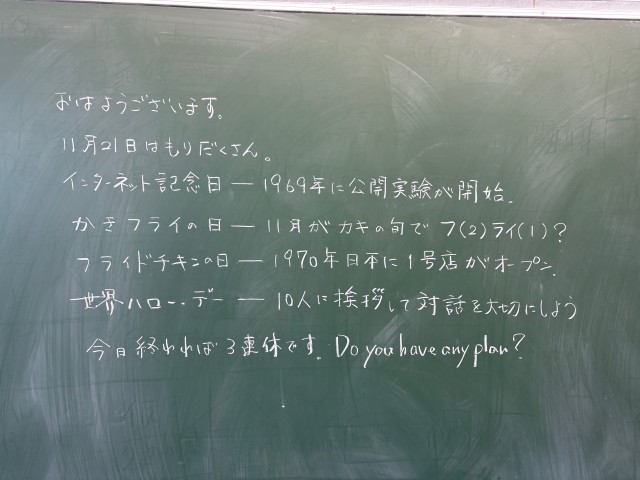 おはようございます。
11月21日はもりだくさん。
インターネット記念日 ー 1969年に公開実験が開始.
かきフライの日 ー 11月がカキの旬で フ(2)ライ(1)?
フライドチキンの日 ー 1970年日本に1号店がオープン.
世界ハロー・デー ー 10人に挨拶して対話を大切にしよう
今日終われば3連休です. Do you have any plan?